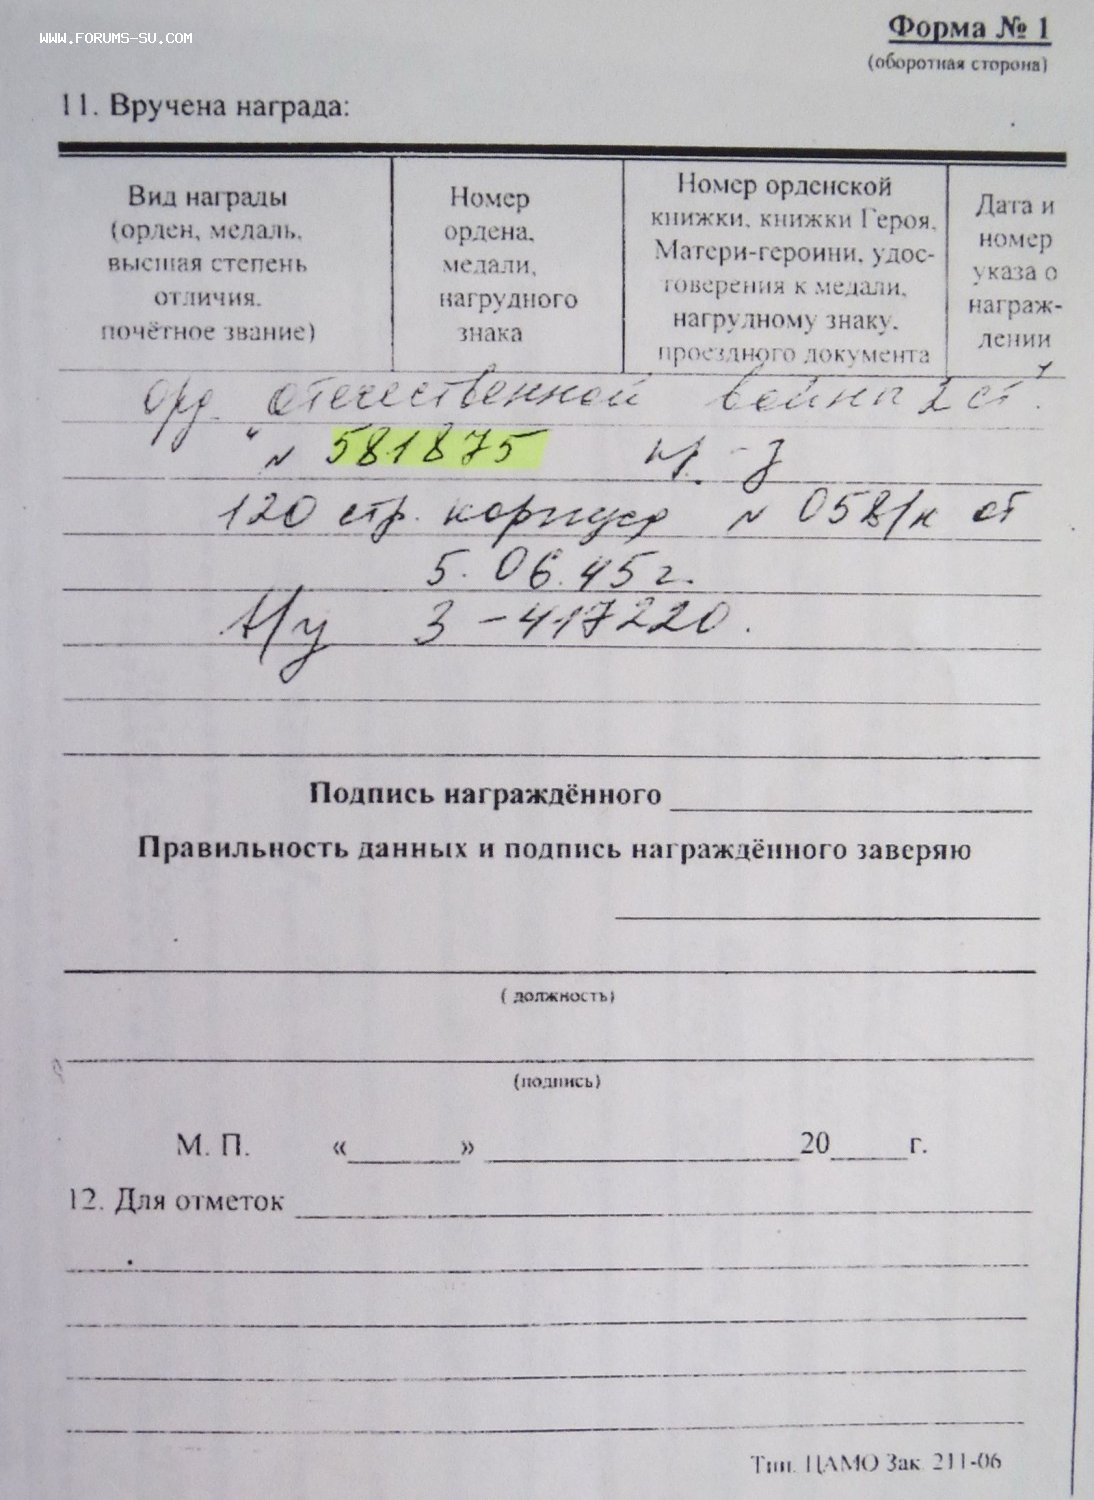 WWW.FORUMS-SU.COM
Форма № 1
(оборотная сторона)
11. Вручена награда:
Вид награды
(орден, медаль,
высшая степень
отличия,
почётное звание)
Номер
ордена,
медали,
нагрудного
знака
Номер орденской
книжки, книжки Героя,
Матери-героини, удос-
товерения к медали,
нагрудному знаку,
проездного документа
Дата и
номер
указа о
награж-
дении
Орд. Отечественной войны 2 ст.
№ 581875
120 стр. корпуса № 058/н от
5.06.45г.
3-417220.
Подпись награждённого
Правильность данных и подпись награждённого заверяю
(должность)
(подпись)
М. П. « » 20 г.
12. Для отметок
Тип. ЦАМО Зак. 211-06